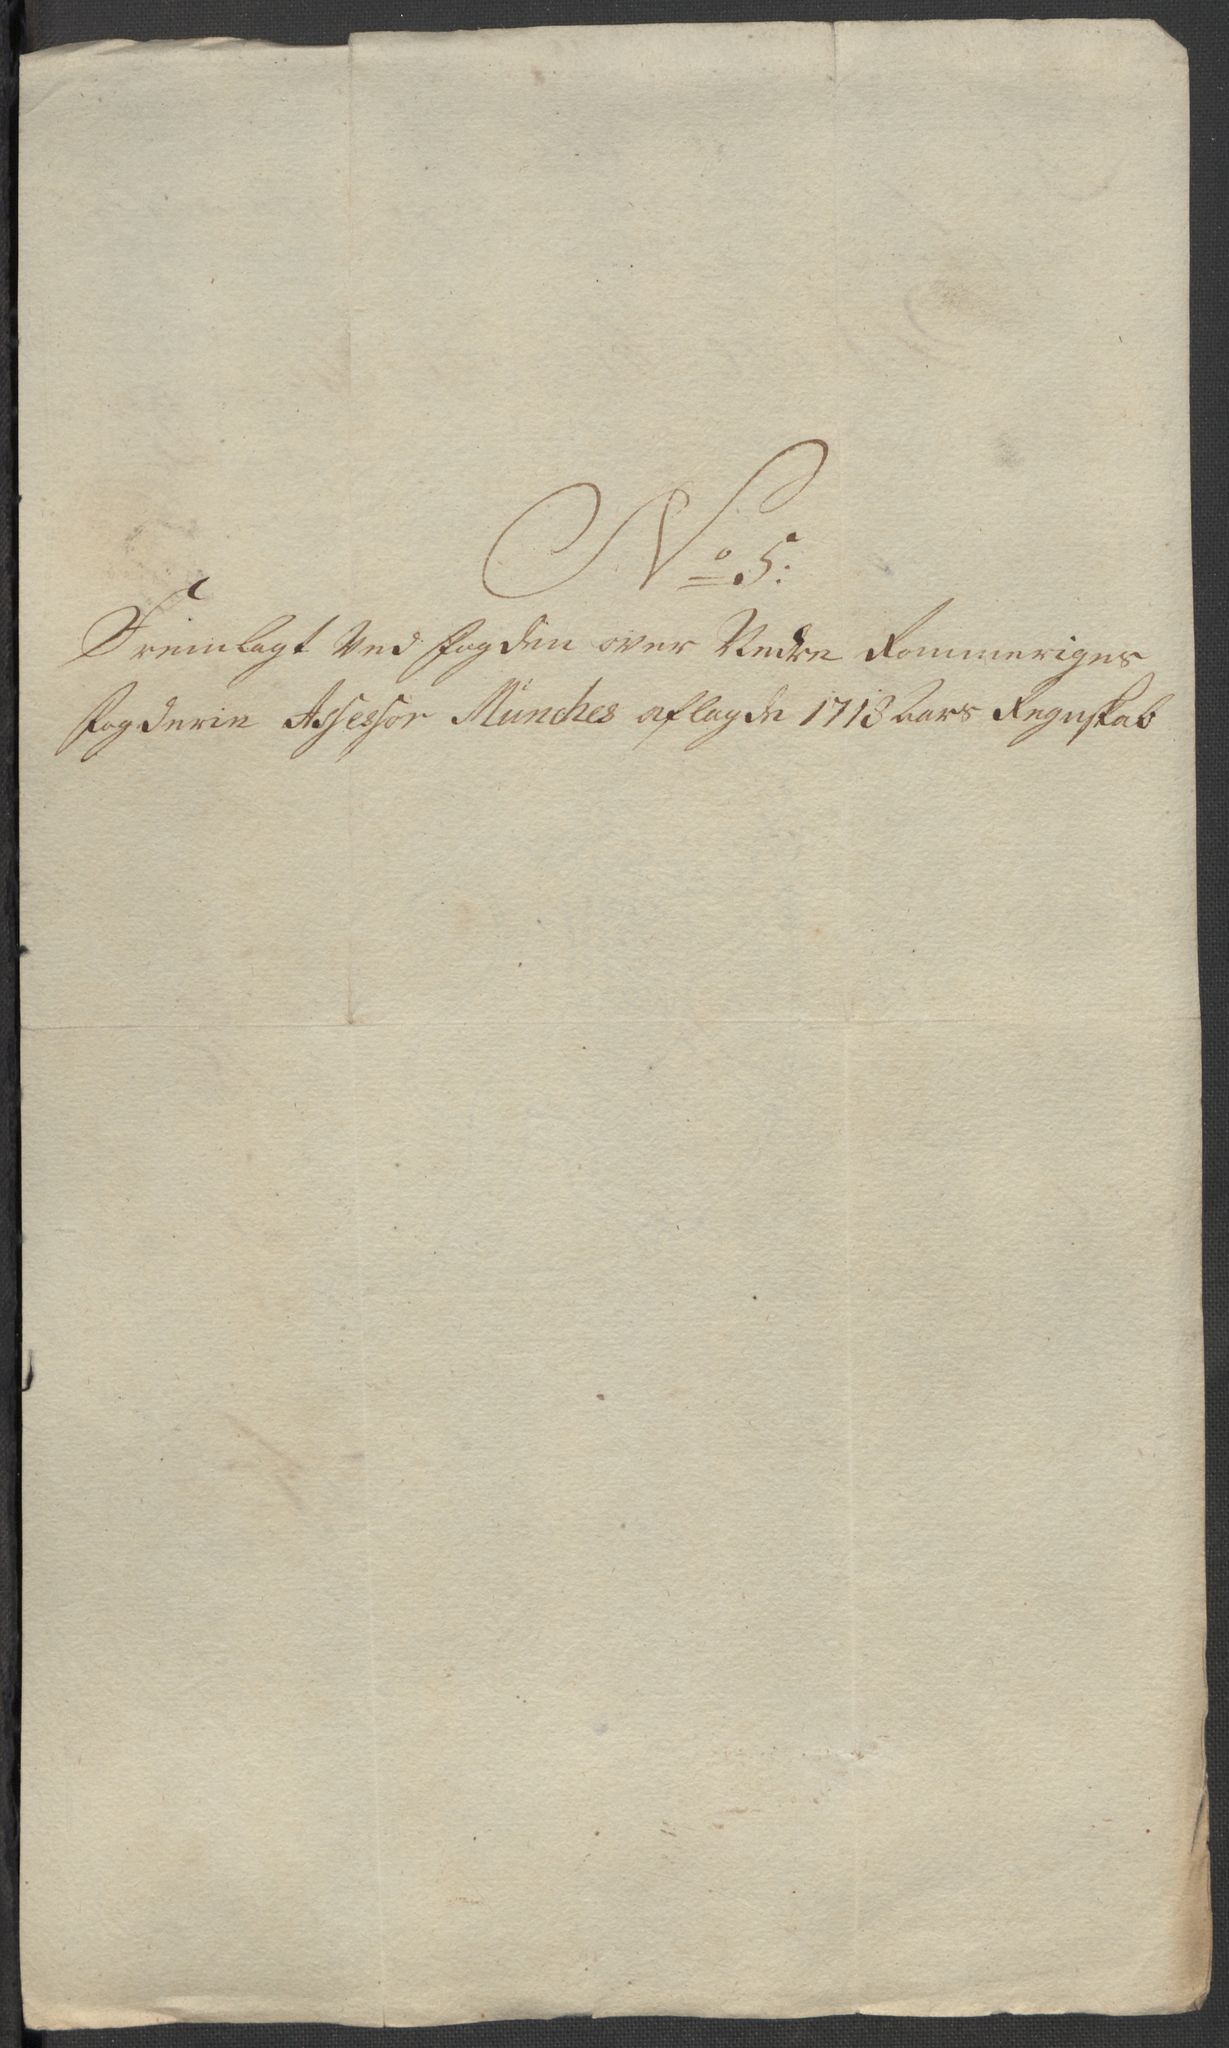 No 5:
Fremlagt Ved fogden over Nedre Rommeriges
fogderie Assessor Münches aflagde 1718 aars Regnskab